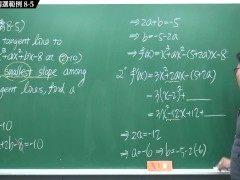 選範例 8-5
8-5)
tangent line to
+ax²+bx-8 at
smallest slope among
tangent lines, find a
-10
+2b-8=-10
⇒2a+b=-5
⇒b=-5-2a
⇒f(x)=x³+ax²-(5+2a)x-8
2° f'(x)=3x²+2ax-(5+2a)
=3(x-2)²+
=3x²-12x+12+
⇒2a=-12
⇒a=-6 ⇒b=-5-2(-6)